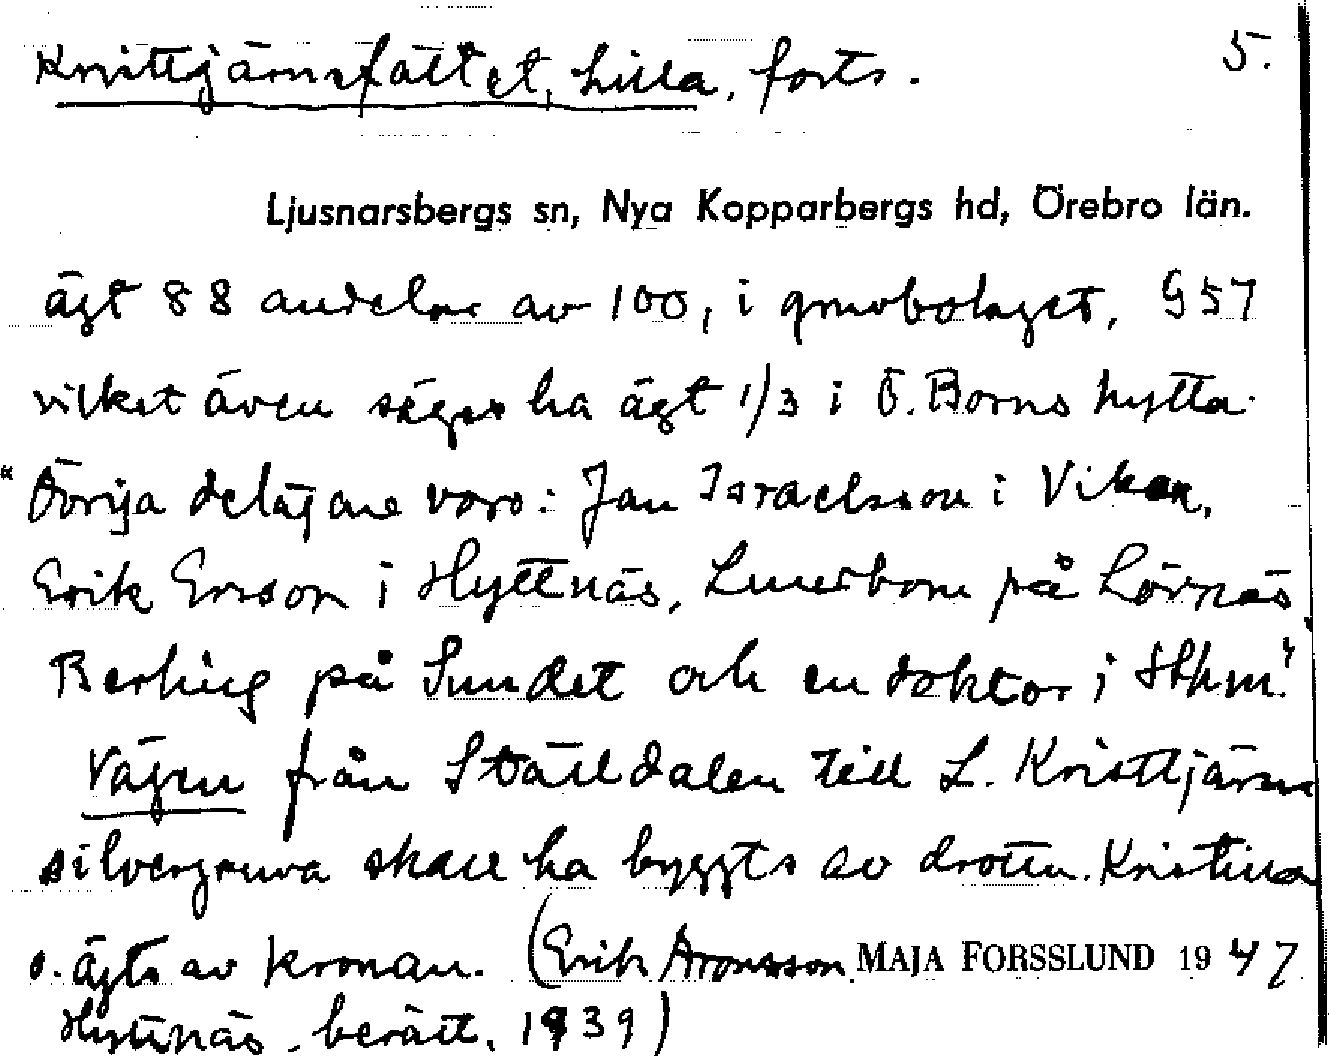 Kristtjärnsfältet, Lilla, forts. 5.
Ljusnarsbergs sn, Nya Kopparbergs hd, Örebro län.
ägt 88 andelar av 100, i gruvbolaget, § 57
vilket även säges ha ägt 1/3 i Ö. Borns hytta.
"Övriga delägare voro: Jan Israelsson i Viken,
Erik Ersson i Hyttnäs, på Lövnäs,
Berling på Sundet och en doktor i Sthm."
Vägen från Ställdalen till L. Kristtjärns
silvergruva skall ha byggts av drottn. Kristina
o. ägts av kronan. (Erik Aronsson MAJA FORSSLUND 1947
Hyttnäs, berätt. 1939)